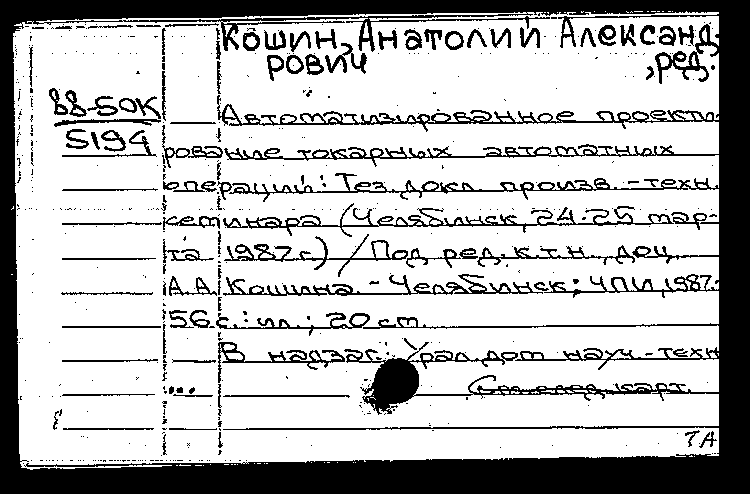 Кошин, Анатолий Александ-
рович ,ред.
88-50К
5194
Автоматизированное проекти-
рование токарных автоматных
операций: Тез. докл. произв.-техн.
семинара (Челябинск, 24-25 мар-
та 1987 г.) / Под ред. к.т.н., доц.
А.А. Кошина. - Челябинск: ЧПИ, 1987.-
56 с.: ил.; 20 см.
В надзаг.: Урал. дом науч.-техн.
... См. след. карт.
ТА